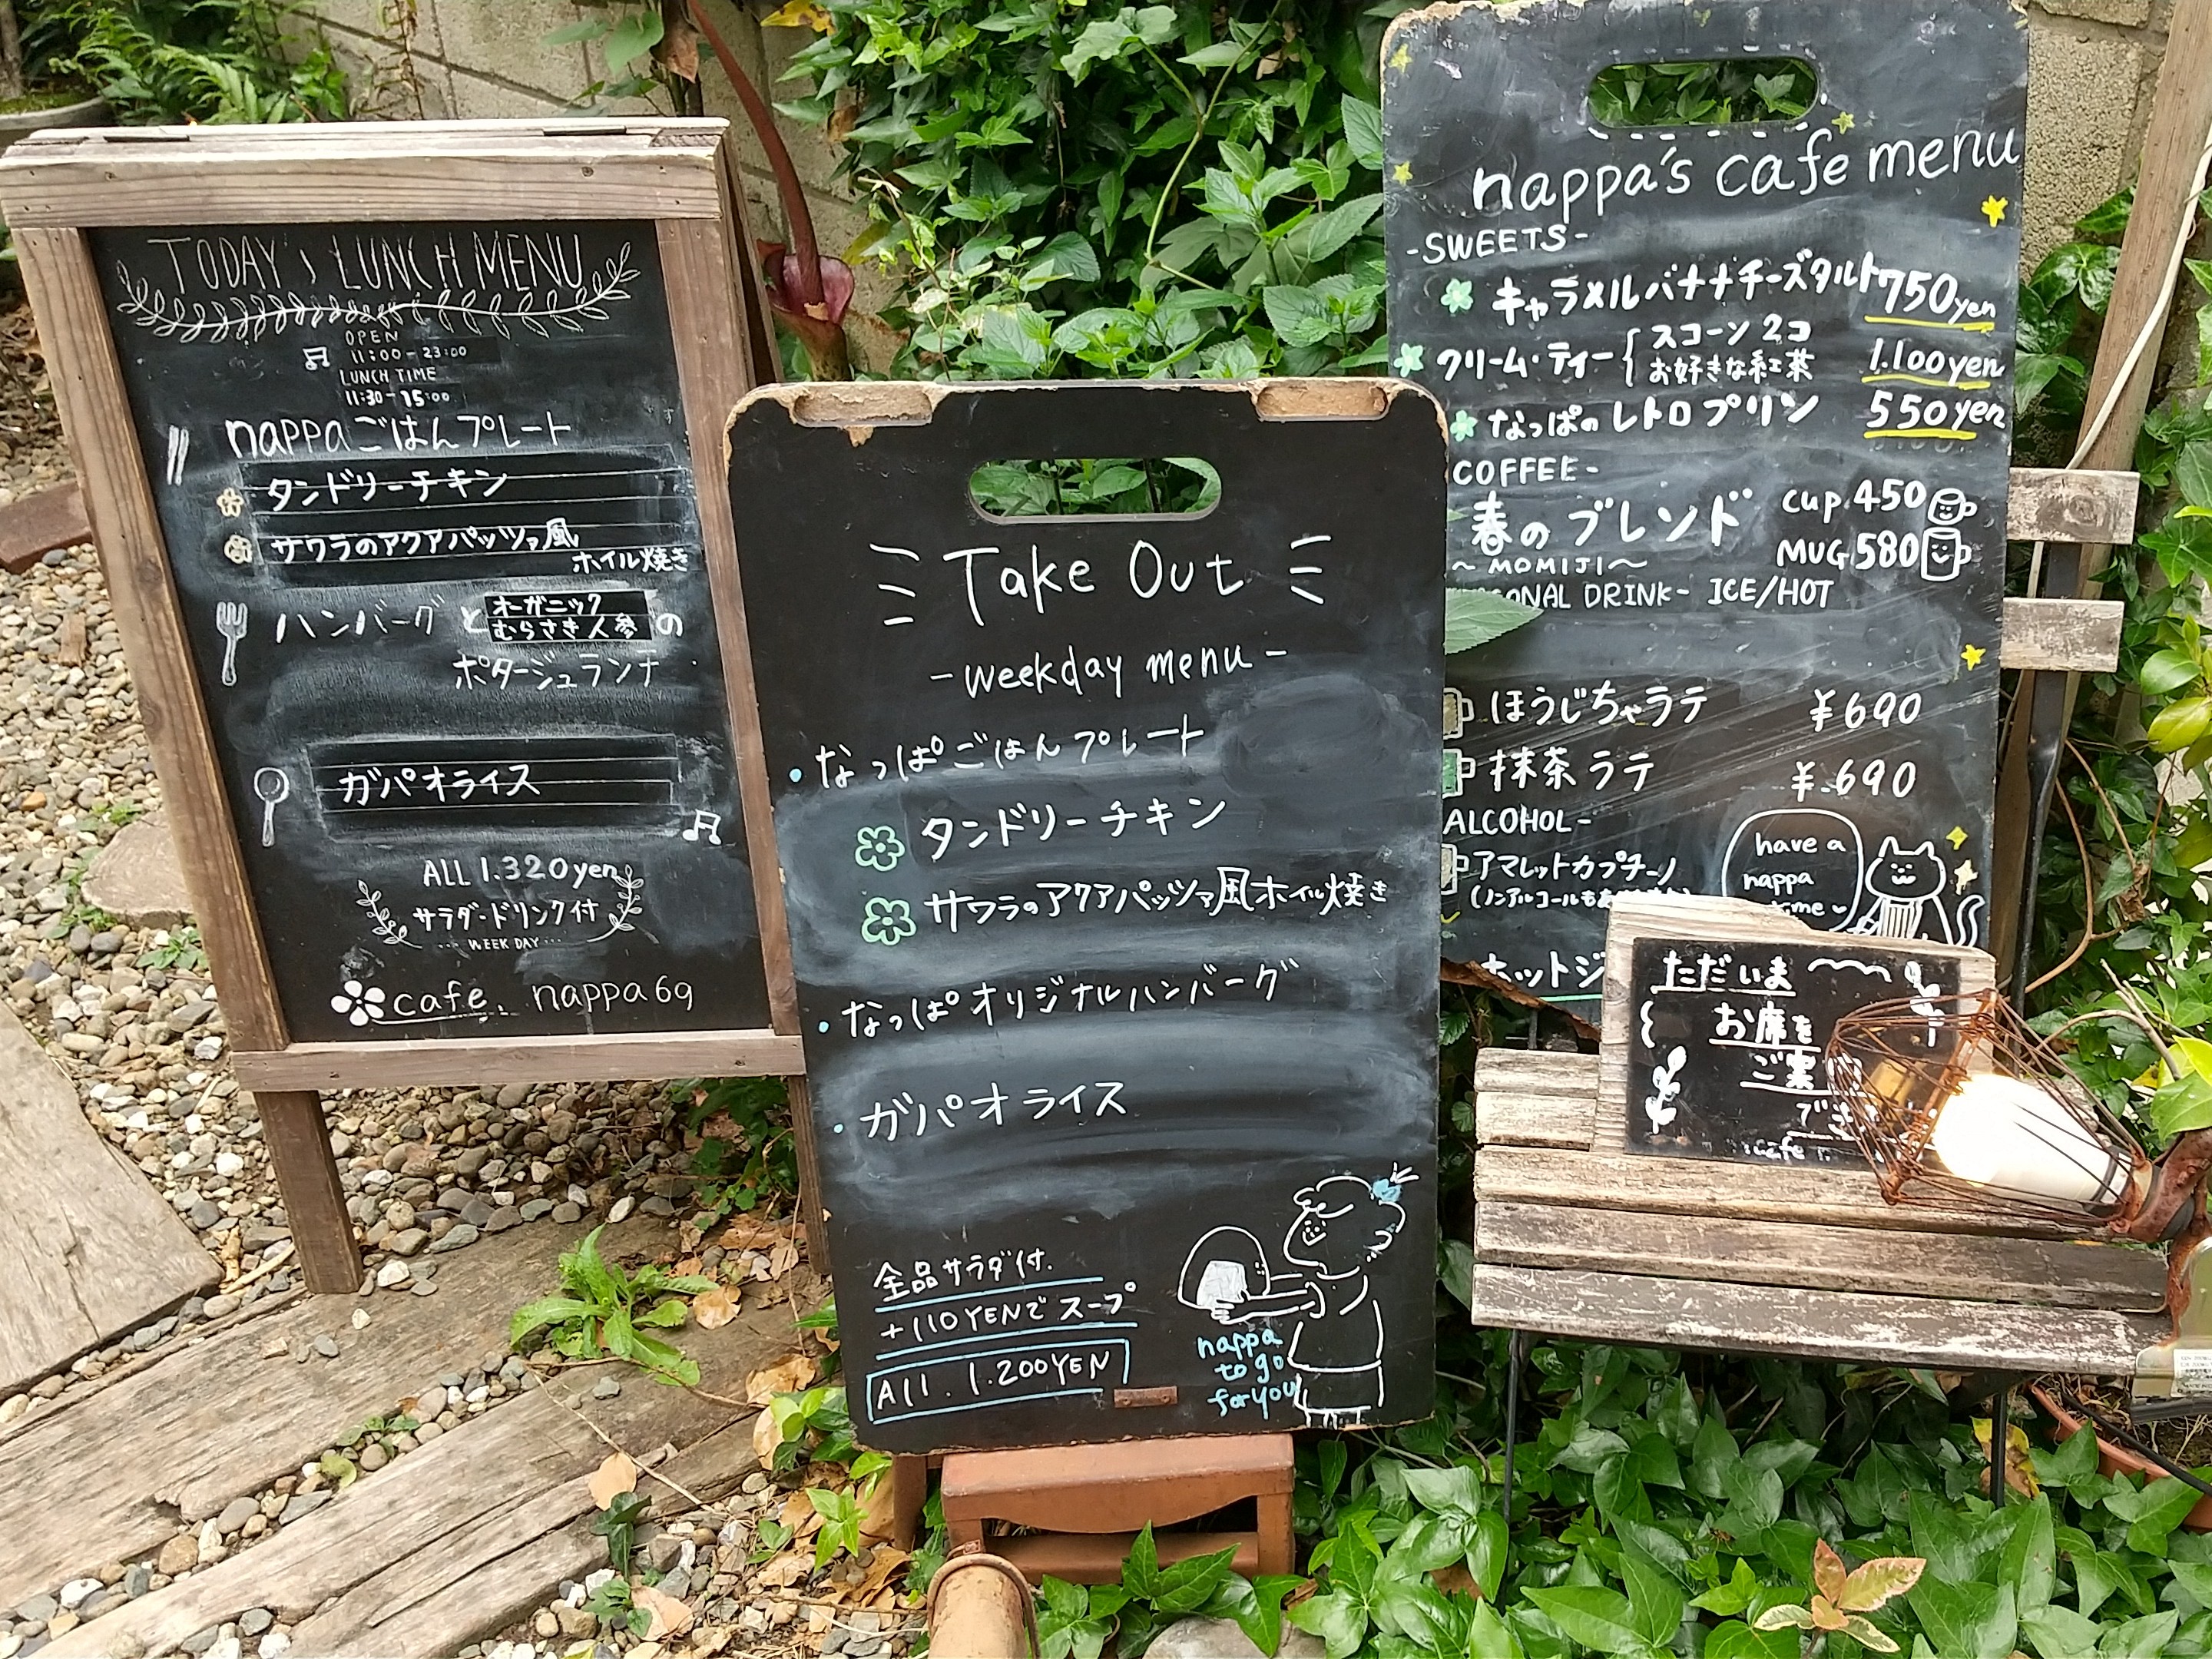 TODAY's LUNCH MENU
OPEN
11:00-23:00
LUNCH TIME
11:30-15:00
nappaごはんプレート
タンドリーチキン
サワラのアクアパッツァ風
ホイル焼き
ハンバーグとオーガニックむらさき人参の
ポタージュランチ
ガパオライス
ALL 1.320yen
サラダ・ドリンク付
WEEK DAY
cafe. nappa69
Take Out
-weekday menu-
・なっぱごはんプレート
タンドリーチキン
サワラのアクアパッツァ風ホイル焼き
・なっぱオリジナルハンバーグ
・ガパオライス
全品サラダ付.
+110YENでスープ
All. 1.200YEN
nappa
to go
for you
nappa's cafe menu
-SWEETS-
キャラメルバナナチーズタルト750yen
クリーム・ティー{スコーン2コ お好きな紅茶 1.100yen
なっぱのレトロプリン 550yen
COFFEE-
春のブレンド cup.450
~MOMIJI~ MUG.580
DRINK- ICE/HOT
ほうじちゃラテ ¥690
抹茶ラテ ¥.690
ALCOHOL-
アマレットカプチーノ
(ノンアルコールも
have a
nappa
time
ホットジ
ただいま
お席を
ご案
でき
cafe